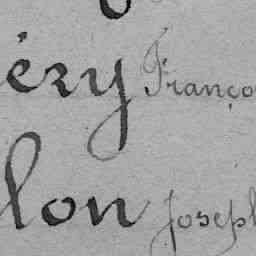 éry Franço
lon Joseph